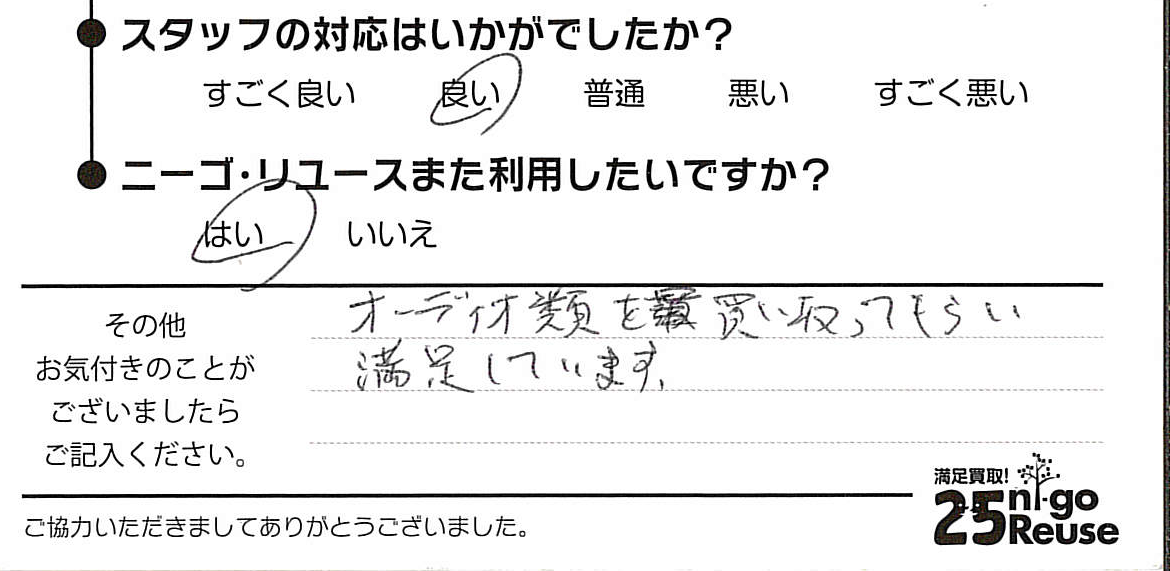 スタッフの対応はいかがでしたか?
すごく良い 良い 普通 悪い すごく悪い
ニーゴ・リユースまた利用したいですか?
はい いいえ
その他
お気付きのことが
ございましたら
ご記入ください。
オーディオ類を買い取ってもらい
満足しています。
満足買取!
25 ni-go
Reuse
ご協力いただきましてありがとうございました。